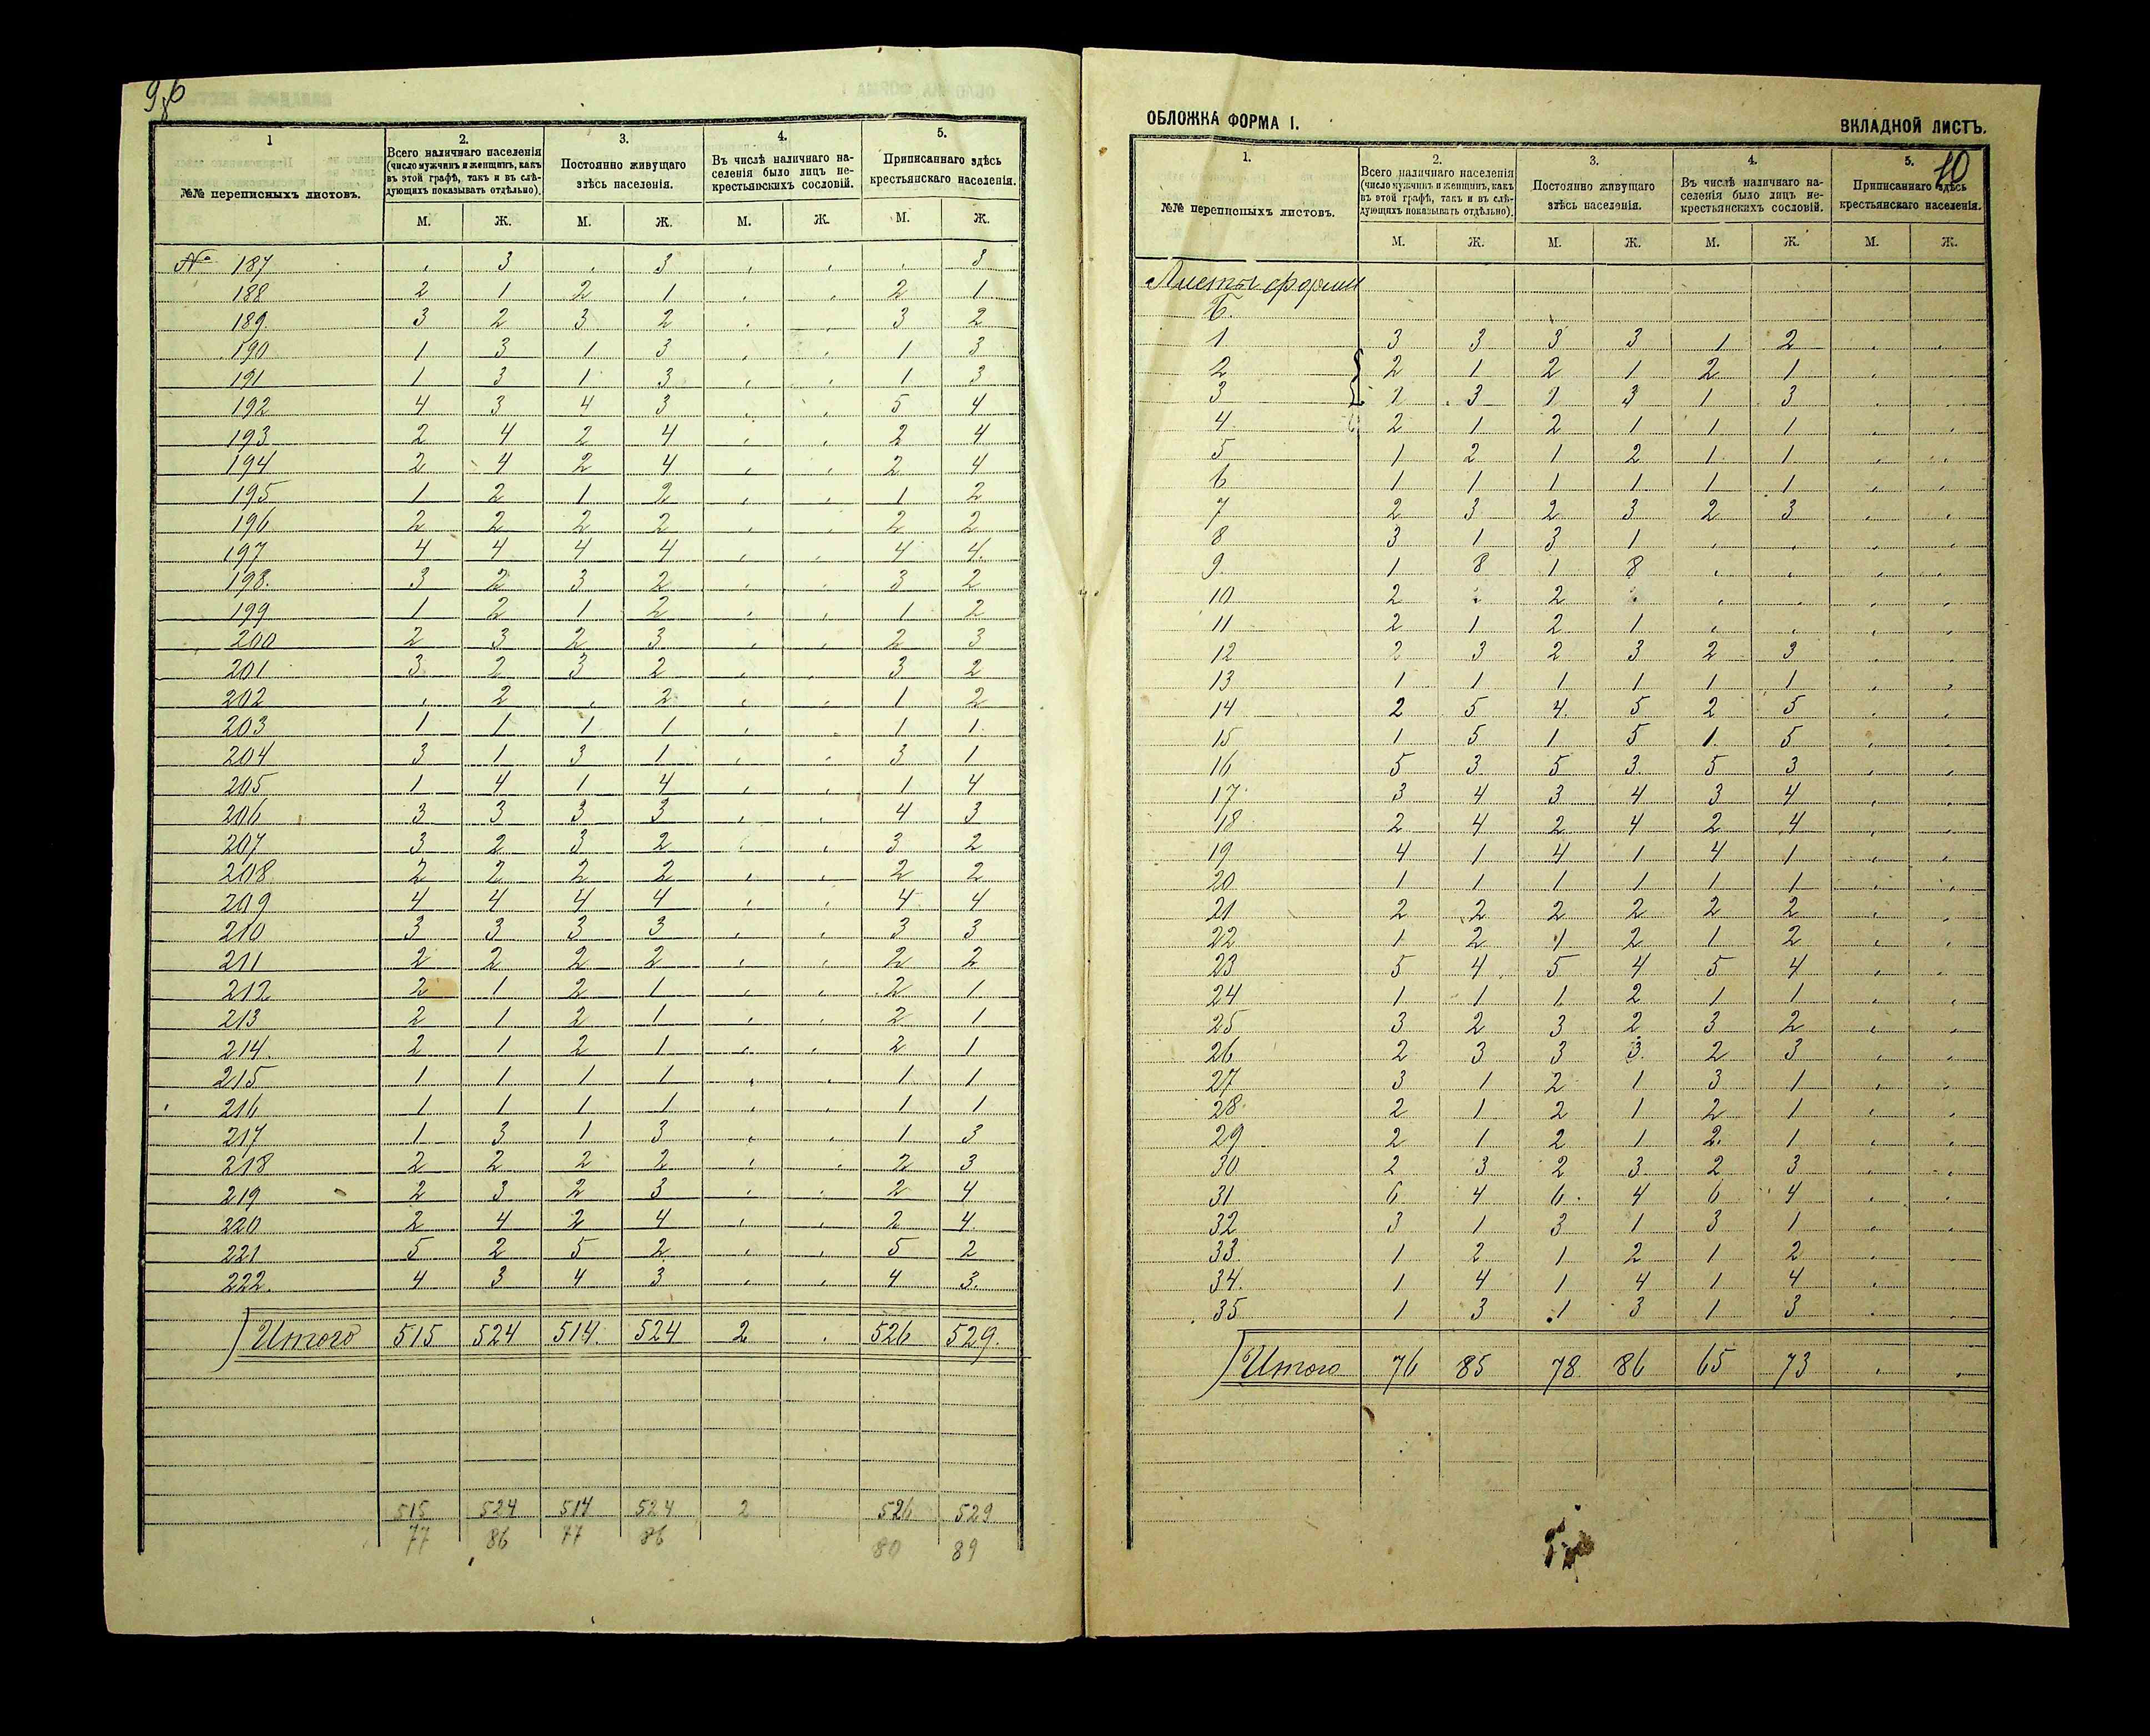 9об
1 2. 3. 4. 5.
№№ переписныхъ листовъ. Всего наличнаго населенія (число мужчинъ и женщинъ, какъ въ этой графѣ, такъ и въ слѣдующихъ показывать отдѣльно). Постоянно живущаго здѣсь населенія. Въ числѣ наличнаго населенія было лицъ не-крестьянскихъ сословій. Приписаннаго здѣсь крестьянскаго населенія.
М. Ж. М. Ж. М. Ж. М. Ж.
№ 187 , 3 , 3 , , , 3
188 2 1 2 1 , , 2 1
189 3 2 3 2 , , 3 2
190 1 3 1 3 , , 1 3
191 1 3 1 3 , , 1 3
192 4 3 4 3 , , 5 4
193 2 4 2 4 , , 2 4
194 2 4 2 4 , , 2 4
195 1 2 1 2 , , 1 2
196 2 2 2 2 , , 2 2
197 4 4 4 4 , , 4 4
198 3 2 3 2 , , 3 2
199 1 2 1 2 , , 1 2
200 2 3 2 3 , , 2 3
201 3 2 3 2 , , 3 2
202 , 2 , 2 , , 1 2
203 1 1 1 1 , , 1 1
204 3 1 3 1 , , 3 1
205 1 4 1 4 , , 1 4
206 3 3 3 3 , , 4 3
207 3 2 3 2 , , 3 2
208 2 2 2 2 , , 2 2
209 4 4 4 4 , , 4 4
210 3 3 3 3 , , 3 3
211 2 2 2 2 , , 2 2
212 2 1 2 1 , , 2 1
213 2 1 2 1 , , 2 1
214 2 1 2 1 , , 2 1
215 1 1 1 1 , , 1 1
216 1 1 1 1 , , 1 1
217 1 3 1 3 , , 1 3
218 2 2 2 2 , , 2 3
219 2 3 2 3 , , 2 4
220 2 4 2 4 , , 2 4
221 5 2 5 2 , , 5 2
222. 4 3 4 3 , , 4 3
Итого 515 524 514 524 2 , 526 529.
515 524 514 524 2 526 529
77 86 77 86 80 89
ОБЛОЖКА ФОРМА I. ВКЛАДНОЙ ЛИСТЪ.
10
1. 2. 3. 4. 5.
№№ переписныхъ листовъ. Всего наличнаго населенія (число мужчинъ и женщинъ, какъ въ этой графѣ, такъ и въ слѣдующихъ показывать отдѣльно). Постоянно живущаго здѣсь населенія. Въ числѣ наличнаго населенія было лицъ не-крестьянскихъ сословій. Приписаннаго здѣсь крестьянскаго населенія.
М. Ж. М. Ж. М. Ж. М. Ж.
Листы формы
Б.
1 3 3 3 3 1 2 , ,
2 2 1 2 1 2 1 , ,
3 1 3 1 3 1 3 , ,
4 2 1 2 1 1 1 , ,
5 1 2 1 2 1 1 , ,
6 1 1 1 1 1 1 , ,
7 2 3 2 3 2 3 , ,
8 3 1 3 1 , , , ,
9 1 8 1 8 , , , ,
10 2 , 2 , , , , ,
11 2 1 2 1 , , , ,
12 2 3 2 3 2 3 , ,
13 1 1 1 1 1 1 , ,
14 2 5 4 5 2 5 , ,
15 1 5 1 5 1 5 , ,
16 5 3 5 3 5 3 , ,
17 3 4 3 4 3 4 , ,
18 2 4 2 4 2 4 , ,
19 4 1 4 1 4 1 , ,
20 1 1 1 1 1 1 , ,
21 2 2 2 2 2 2 , ,
22 1 2 1 2 1 2 , ,
23 5 4 5 4 5 4 , ,
24 1 1 1 2 1 1 , ,
25 3 2 3 2 3 2 , ,
26 2 3 3 3 2 3 , ,
27 3 1 2 1 3 1 , ,
28 2 1 2 1 2 1 , ,
29 2 1 2 1 2 1 , ,
30 2 3 2 3 2 3 , ,
31 6 4 6 4 6 4 , ,
32 3 1 3 1 3 1 , ,
33 1 2 1 2 1 2 , ,
34 1 4 1 4 1 4 , ,
35 1 3 1 3 1 3 , ,
Итого 76 85 78 86 65 73 , ,